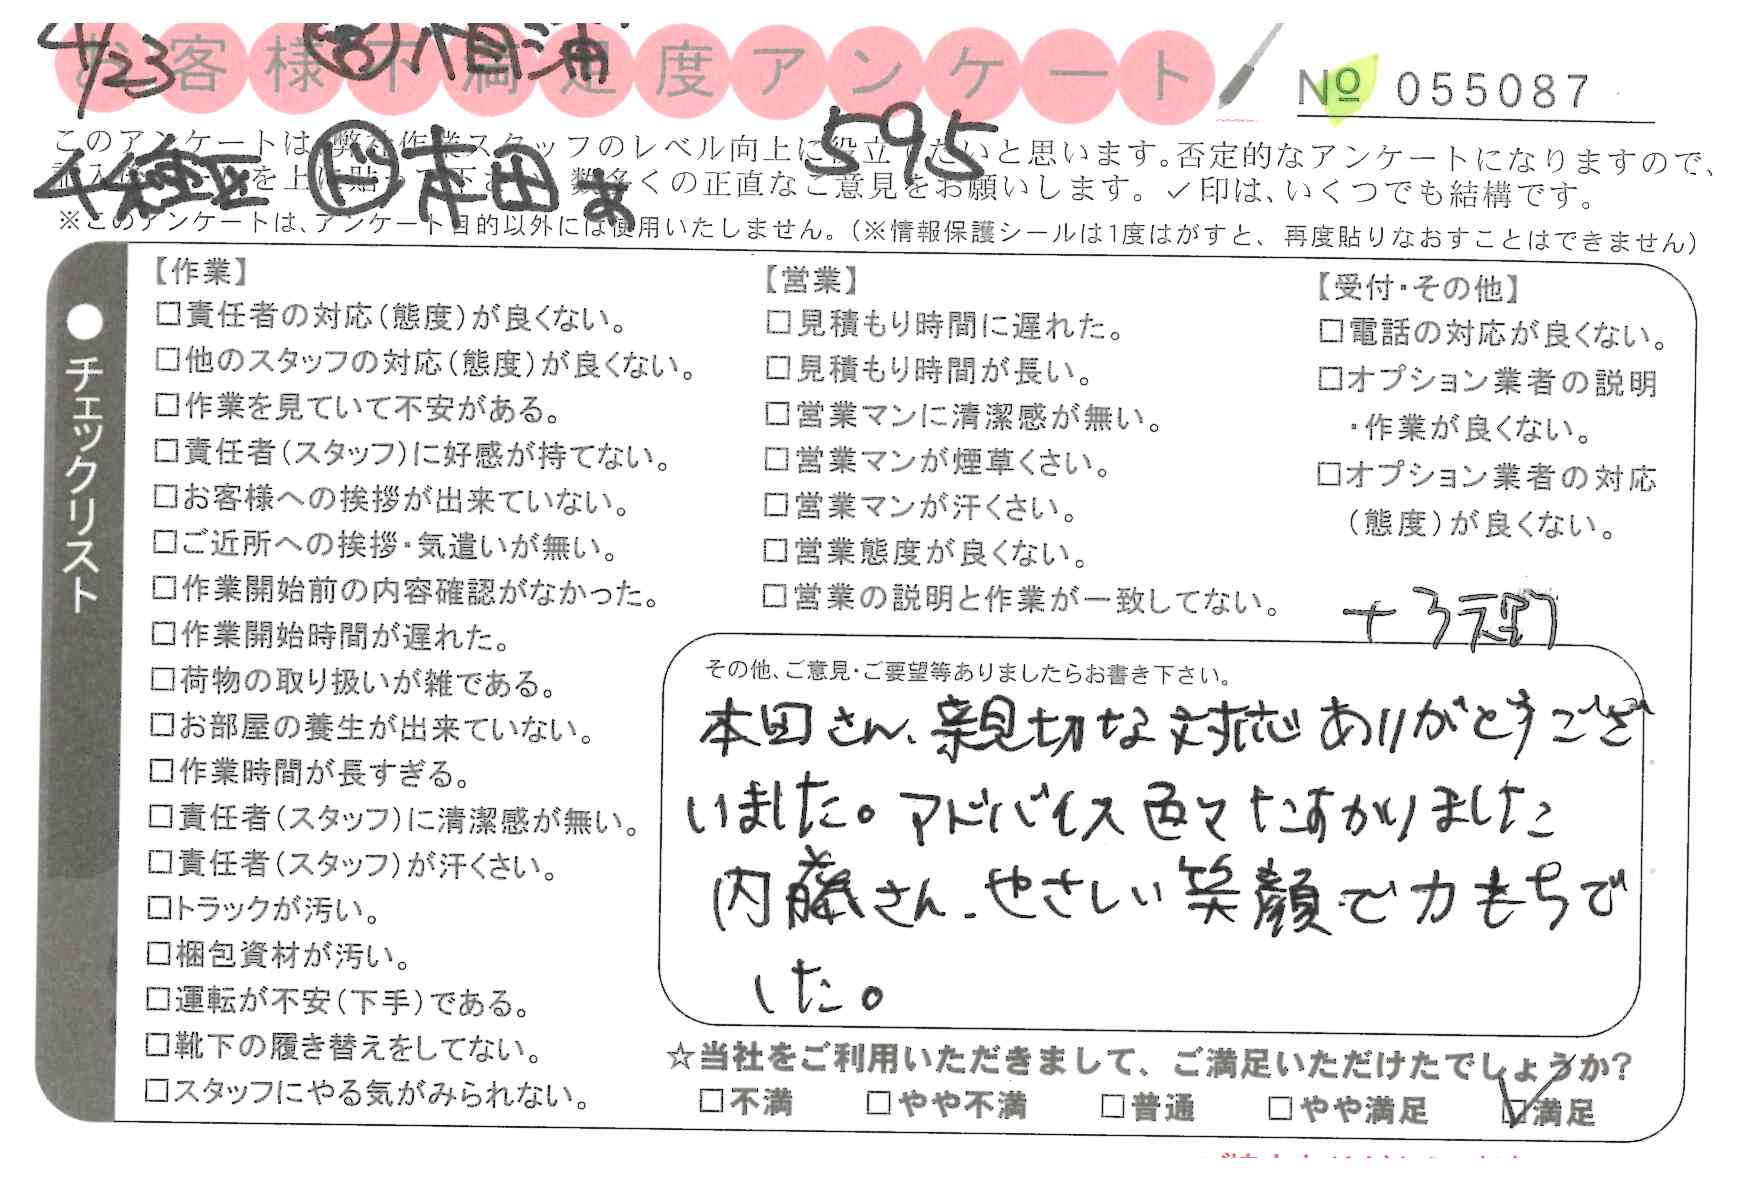 4/23
お客様不満足度アンケート
№ 055087
595
千種区 ド 本田
このアンケートは、弊社作業スタッフのレベル向上に役立てたいと思います。否定的なアンケートになりますので、
記入後シールを上に貼って下さい。数多くの正直なご意見をお願いします。✓印は、いくつでも結構です。
※このアンケートは、アンケート目的以外には使用いたしません。(※情報保護シールは1度はがすと、再度貼りなおすことはできません)
●チェックリスト
【作業】
□責任者の対応(態度)が良くない。
□他のスタッフの対応(態度)が良くない。
□作業を見ていて不安がある。
□責任者(スタッフ)に好感が持てない。
□お客様への挨拶が出来ていない。
□ご近所への挨拶・気遣いが無い。
□作業開始前の内容確認がなかった。
□作業開始時間が遅れた。
□荷物の取り扱いが雑である。
□お部屋の養生が出来ていない。
□作業時間が長すぎる。
□責任者(スタッフ)に清潔感が無い。
□責任者(スタッフ)が汗くさい。
□トラックが汚い。
□梱包資材が汚い。
□運転が不安(下手)である。
□靴下の履き替えをしてない。
□スタッフにやる気がみられない。
【営業】
□見積もり時間に遅れた。
□見積もり時間が長い。
□営業マンに清潔感が無い。
□営業マンが煙草くさい。
□営業マンが汗くさい。
□営業態度が良くない。
□営業の説明と作業が一致してない。
【受付・その他】
□電話の対応が良くない。
□オプション業者の説明
・作業が良くない。
□オプション業者の対応
(態度)が良くない。
その他、ご意見・ご要望等ありましたらお書き下さい。
本田さん、親切な対応ありがとうござ
いました。アドバイス色々たすかりました
内藤さん、やさしい笑顔で力もちで
した。
☆当社をご利用いただきまして、ご満足いただけたでしょうか?
□不満 □やや不満 □普通 □やや満足 ☑満足